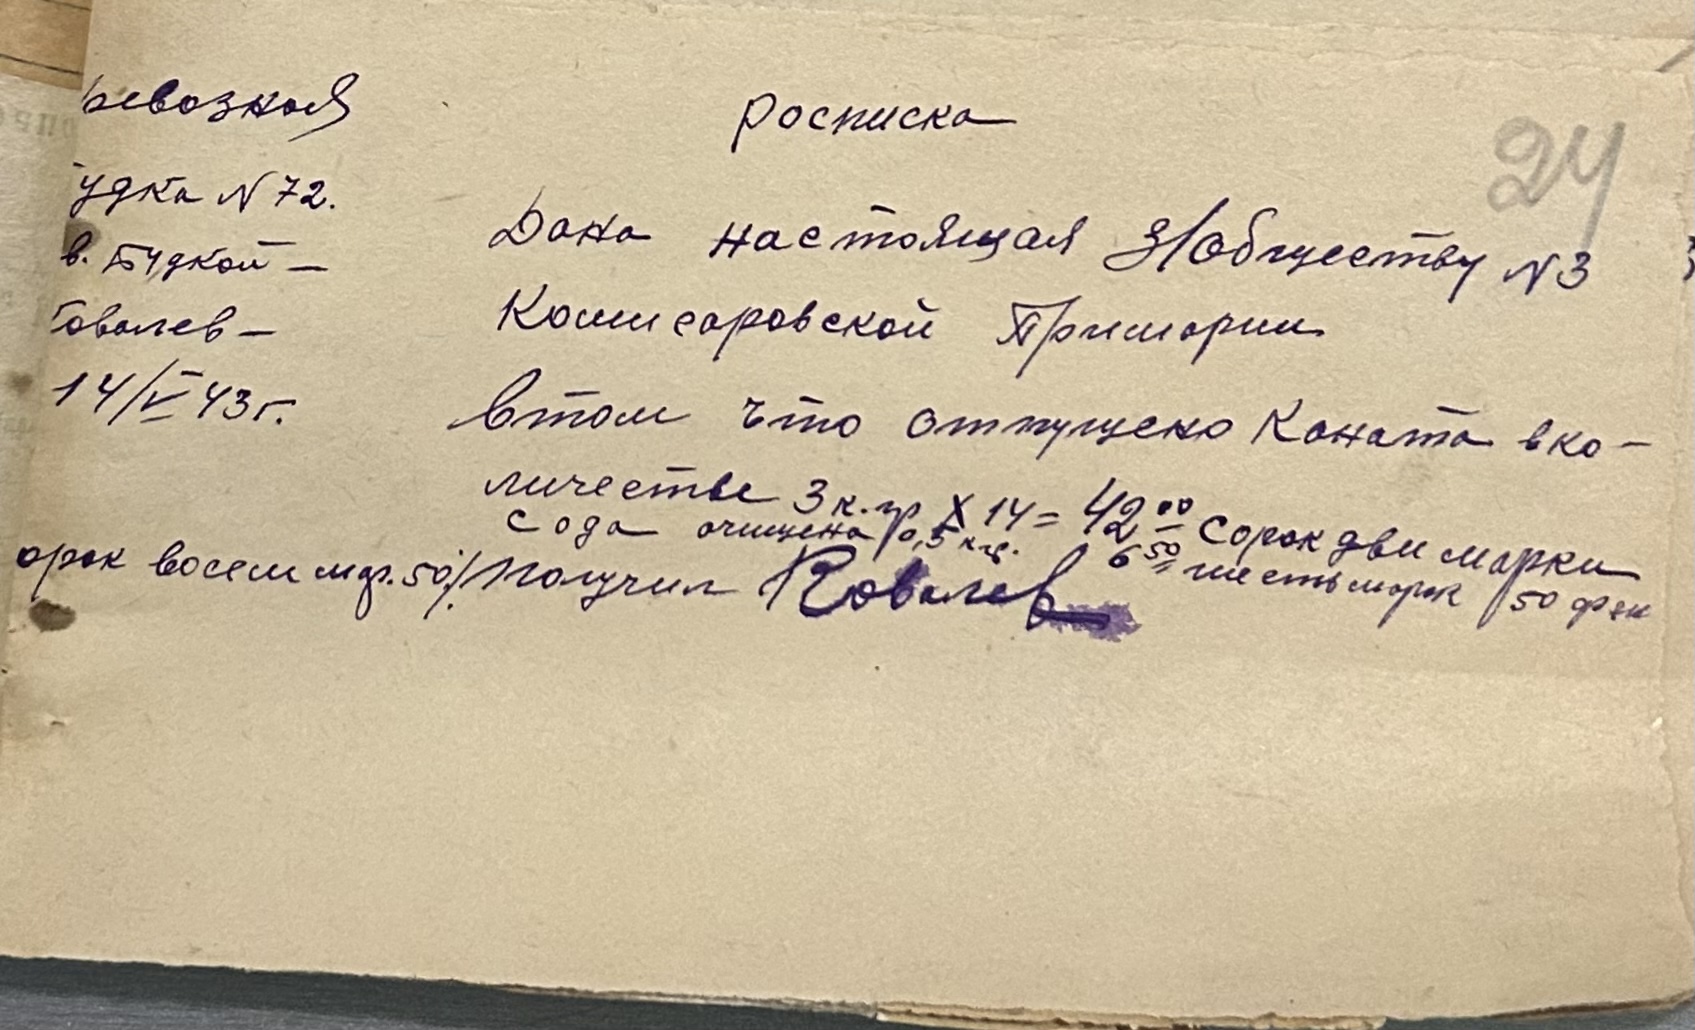 24
росписка
ревозная
удка N 72.
в. Будкой –
Ковалев –
14/V 43 г.
Дана настоящая З/обществу N 3
Комисаровской Примарии
втом что отпущено Каната вко-
личестве 3 к.гр X 14 = 42 00 Сорок две марки
сода очищена 0,5 кгр. 6 50 шесть марок 50 фен
орок восем мар. 50/ Получил Ковалев